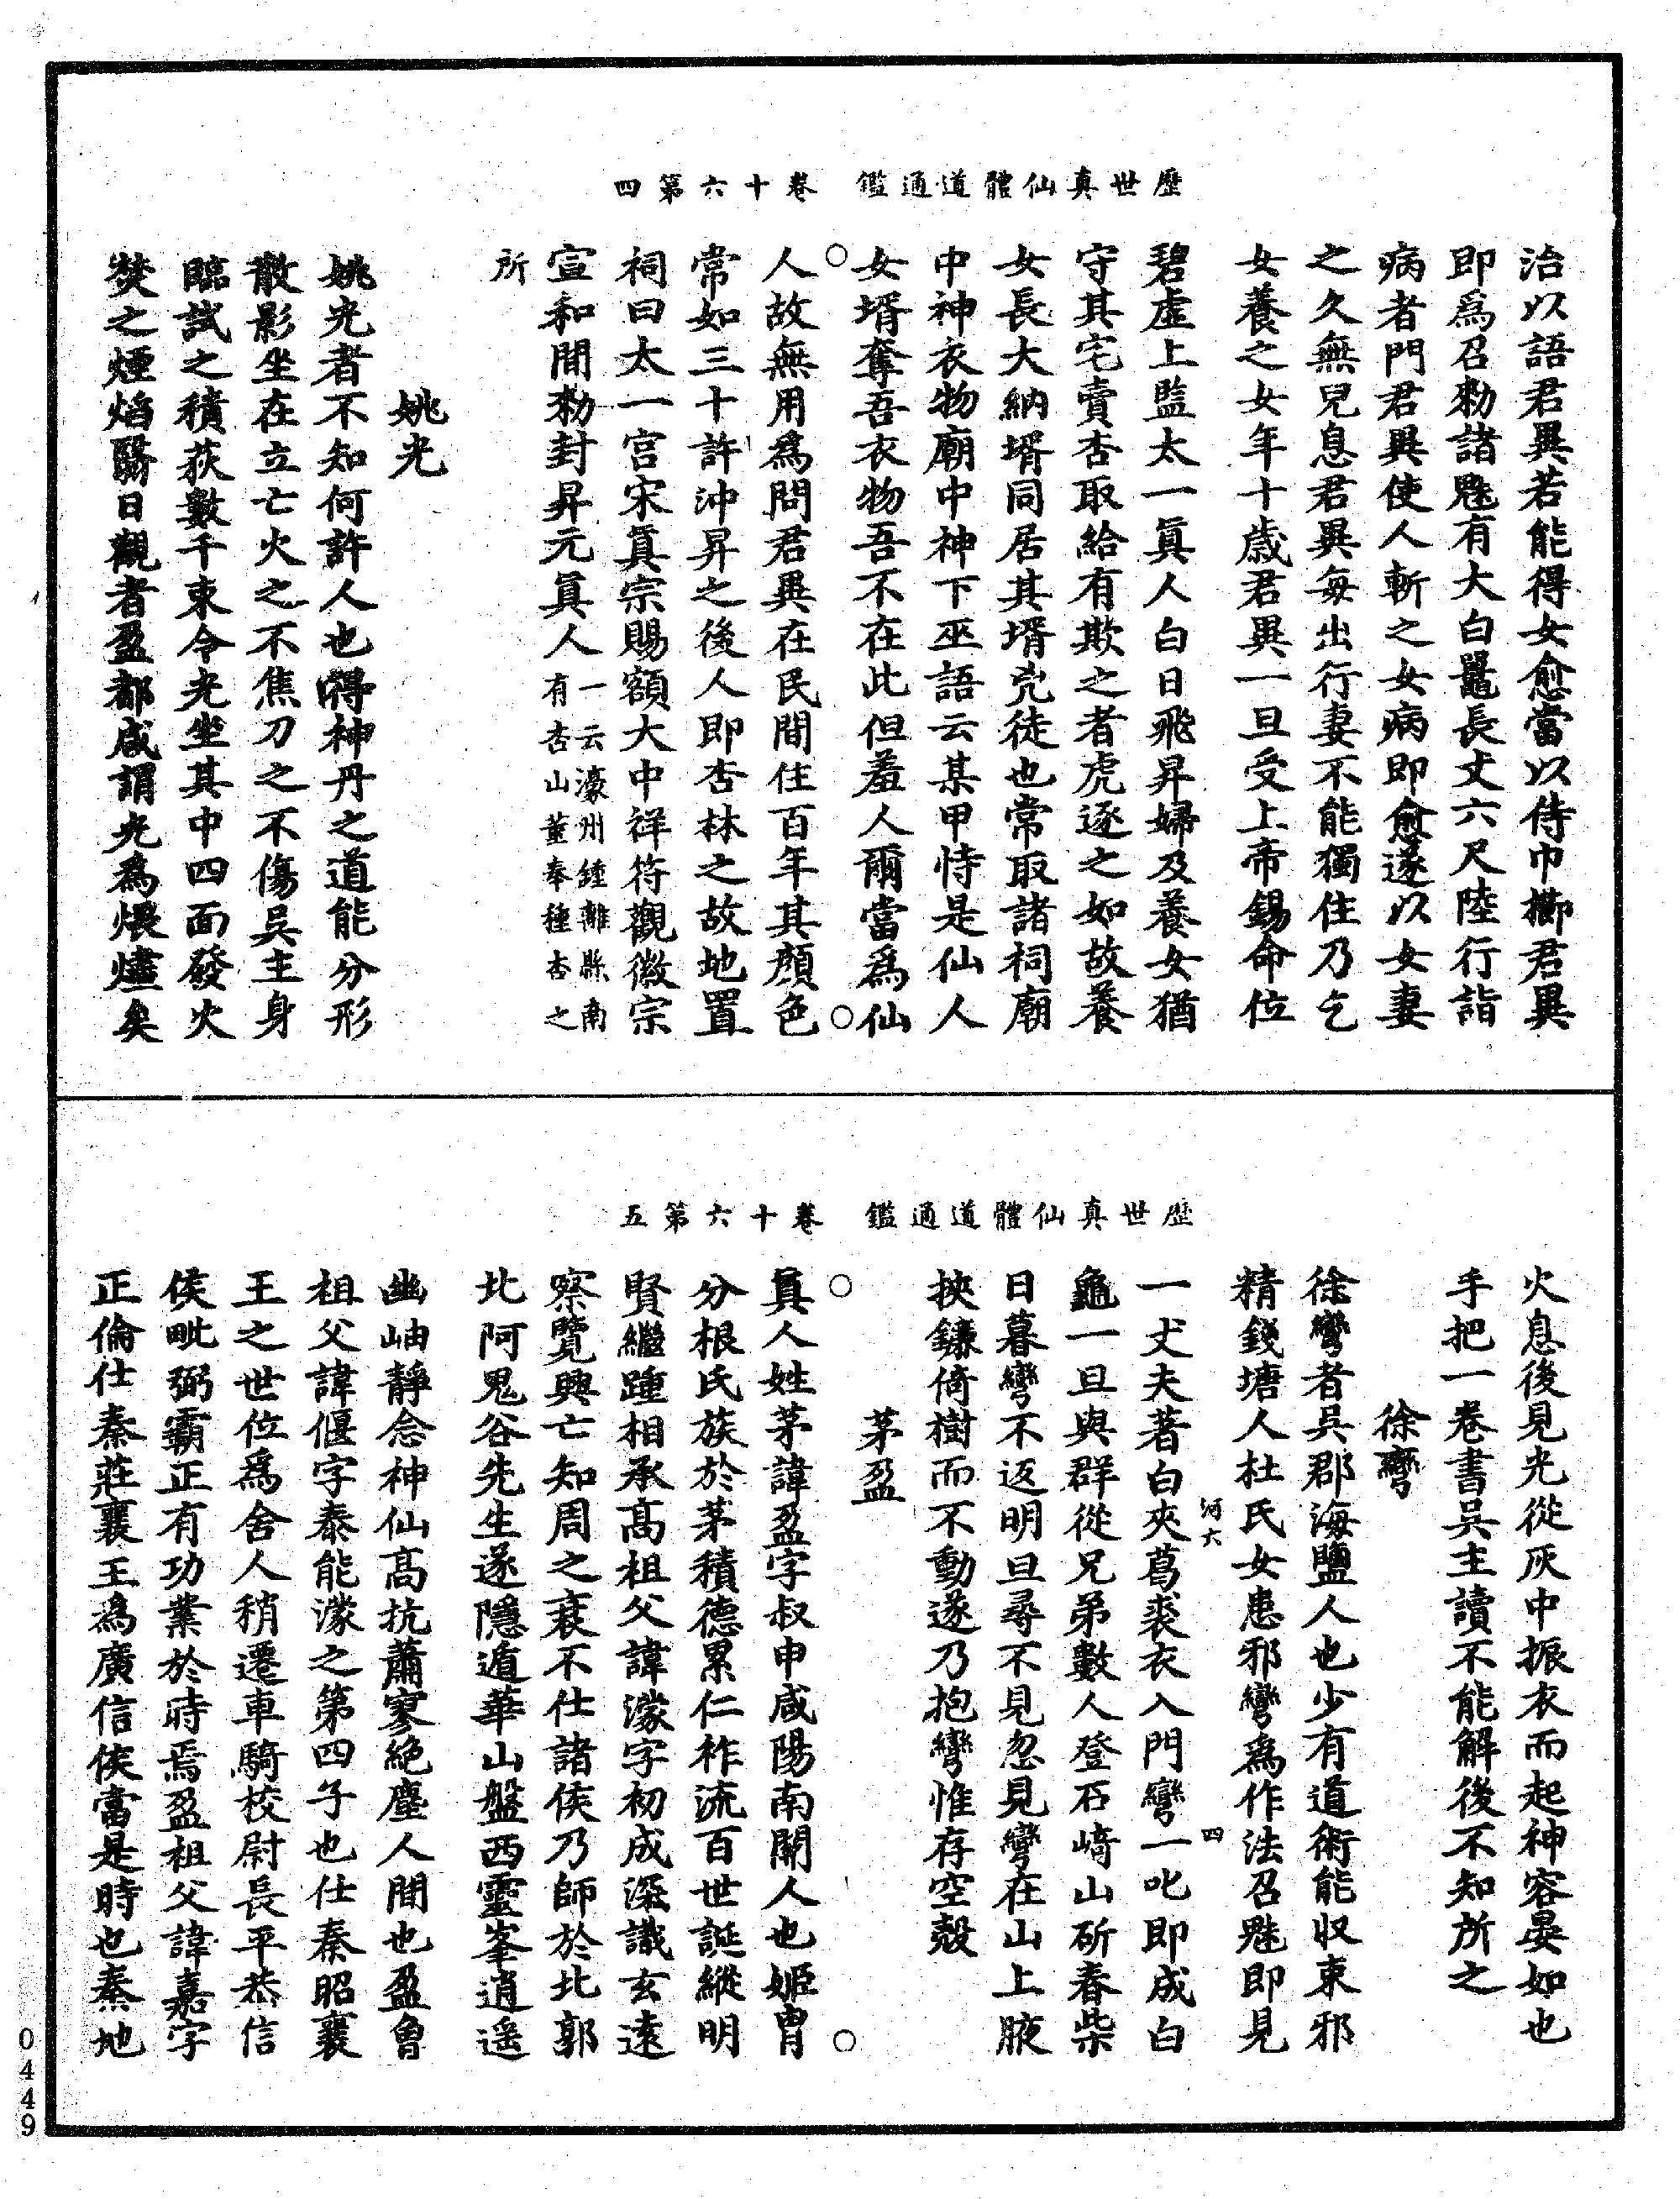 歷世真仙體道通鑑　卷十六第四
治以語君異若能得女愈當以侍巾櫛君異
即爲召勑諸魅有大白鼉長丈六尺陸行詣
病者門君異使人斬之女病即愈遂以女妻
之久無兒息君異每出行妻不能獨住乃乞
女養之女年十歲君異一旦受上帝錫命位
碧虛上監太一眞人白日飛昇婦及養女猶
守其宅賣杏取給有欺之者虎逐之如故養
女長大納壻同居其壻兇徒也常取諸祠廟
中神衣物廟中神下巫語云某甲恃是仙人
女壻奪吾衣物吾不在此但羞人爾當爲仙
人故無用爲問君異在民間住百年其顏色
常如三十許沖昇之後人即杏林之故地置
祠曰太一宮宋眞宗賜額大中祥符觀徽宗
宣和間勑封昇元眞人一云濠州鍾離縣南有杏山董奉種杏之
所
姚光
姚光者不知何許人也得神丹之道能分形
散影坐在立亡火之不焦刀之不傷吳主身
臨試之積荻數千束令光坐其中四面發火
焚之煙焰翳日觀者盈都咸謂光爲煨燼矣
歷世真仙體道通鑑　卷十六第五
火息後見光從灰中振衣而起神容晏如也
手把一卷書吳主讀不能解後不知所之
徐彎
徐彎者吳郡海鹽人也少有道術能收束邪
精錢塘人杜氏女患邪彎爲作法召魅即見
河六　四
一丈夫著白夾葛裘衣入門彎一叱即成白
龜一旦與群從兄弟數人登石崎山斫春柴
日暮彎不返明旦尋不見忽見彎在山上腋
挾鐮倚樹而不動遂乃抱彎惟存空殼
茅盈
眞人姓茅諱盈字叔申咸陽南關人也姬胄
分根氏族於茅積德累仁祚流百世誕縱明
賢繼踵相承高祖父諱濛字初成深識玄遠
察覽興亡知周之衰不仕諸侯乃師於北郭
北阿鬼谷先生遂隱遁華山盤西靈峯逍遥
幽岫靜念神仙高抗蕭寥絕塵人間也盈曾
祖父諱偃字泰能濛之第四子也仕秦昭襄
王之世位爲舍人稍遷車騎校尉長平恭信
侯毗弼霸正有功業於時焉盈祖父諱嘉字
正倫仕秦莊襄王爲廣信侯當是時也秦地
0449